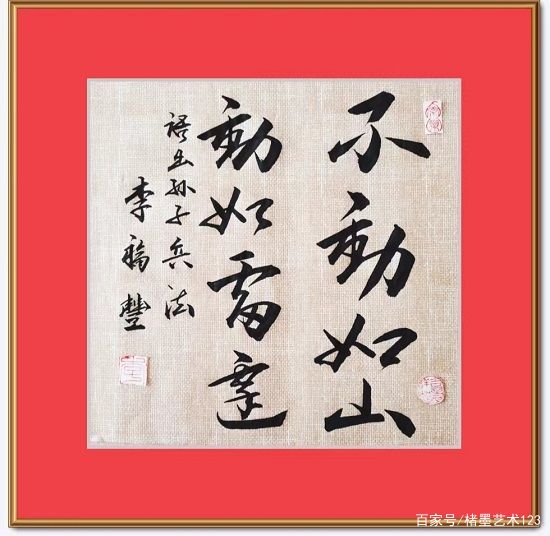 不動如山
動如雷霆
語出孙子兵法
李福豐
百家号/楮墨艺术123